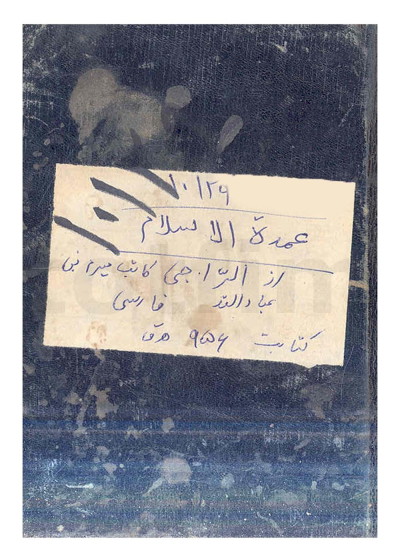 ۱۰۱۲۹
عمدة الاسلام
از الراجی کاتب میر نبی
عباد الله فارسی
کتابت ۹۵۶ ه‍ ق